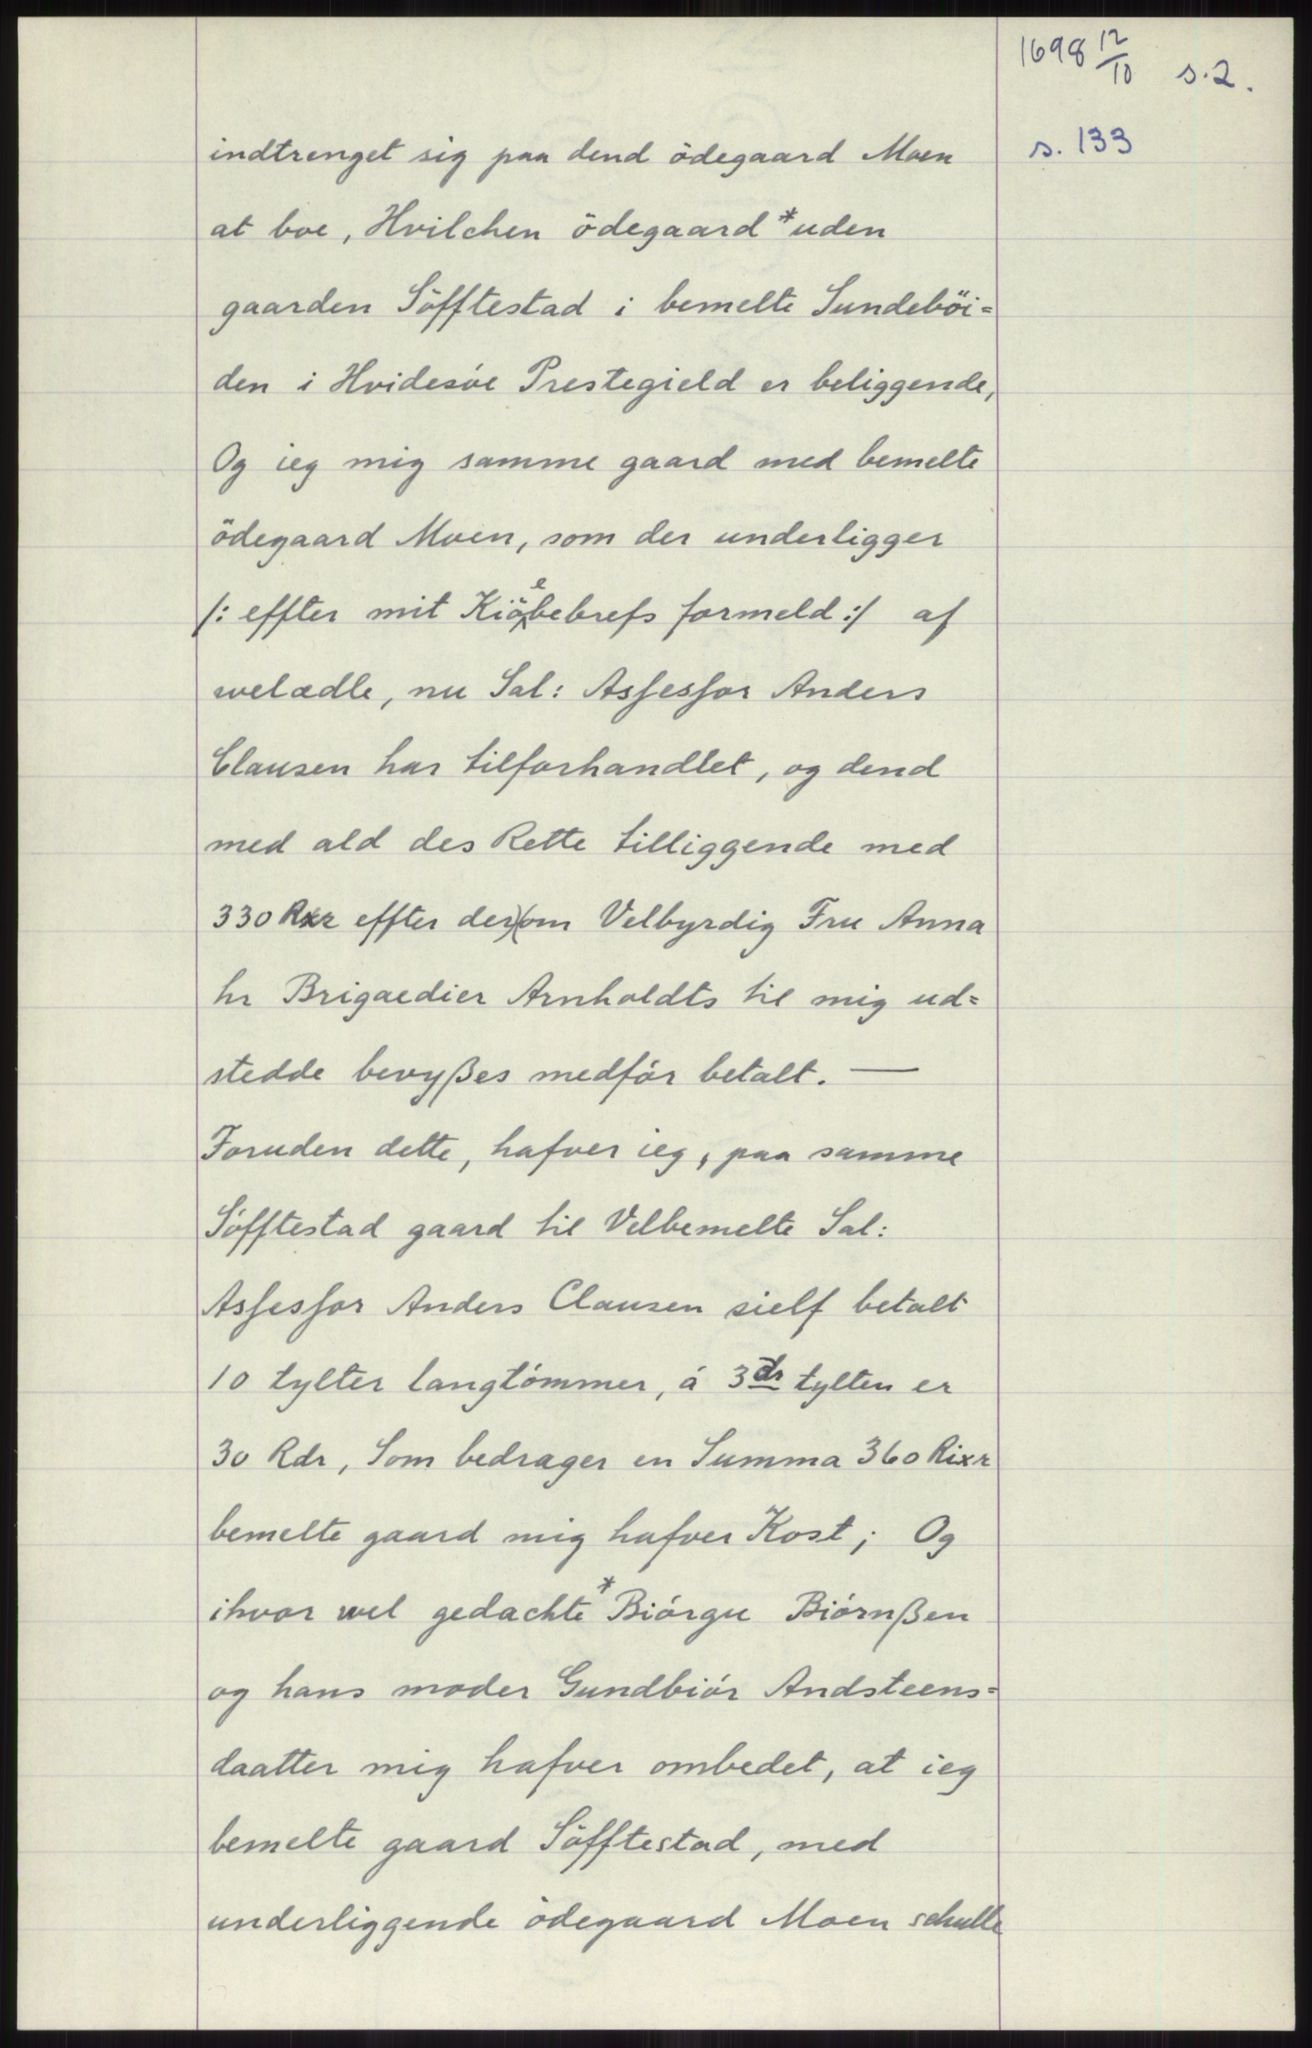 1698 12/10 s. 2.
s. 133
indtrenget sig paa dend ödegaard Moen
at boe, Hvilchen ödegaard * uden
gaarden Söfftestad i bemelte Sundeböi=
den i Hvidesöe Prestegield er beliggende,
Og ieg mig samme gaard med bemelte
ödegaard Moen, som der underligger
/: effter mit Kiöebebrefs formeld :/ af
welædle, nu Sal: Asſesſor Anders
Clausen har tilforhandlet, og dend
med ald des Rette tilliggende med
330 Rxr effter der)(om Velbyrdig Fru Anna
hr Brigaedier Arnholdts til mig ud=
stedde bevyßes medför betalt. —
Foruden dette, hafver ieg, paa samme
Söfftestad gaard til Velbemelte Sal:
Asſesſor Anders Clausen sielf betalt
10 tylter langtömmer, á 3 dr tylten er
30 Rdr, Som bedrager en Summa 360 Rixr
bemelte gaard mig hafver Kost; Og
ihvor wel gedachte * Biörgu Biörnßen
og hans moder Gundbiör Andsteens=
daatter mig hafver ombedet, at ieg
bemelte gaard Söfftestad, med
underliggende ödegaard Moen schulle